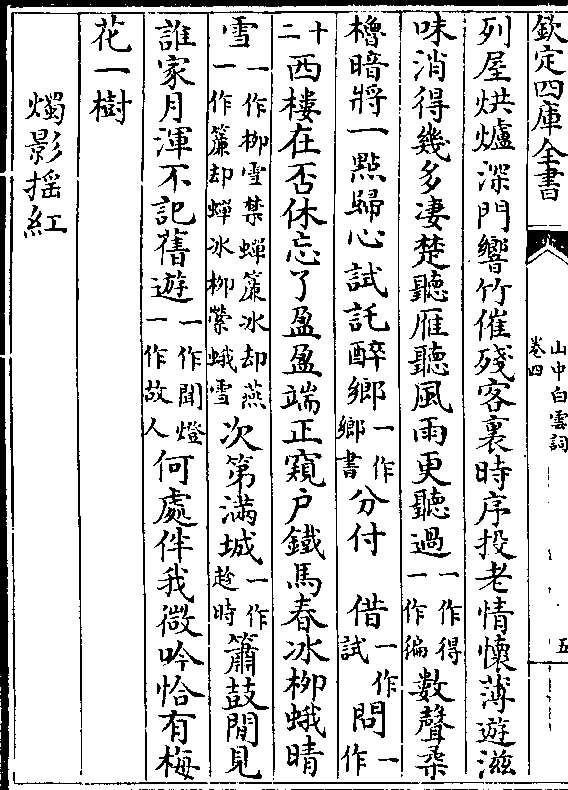 欽定四庫全書
山中白雲詞
卷四
五
列屋烘爐深門響竹催殘客裏時序投老情懷薄遊滋
味消得幾多凄楚聽雁聽風雨更聽過一作得一作徧數聲柔
櫓暗將一點歸心試託醉鄉一作鄉書分付　借一作試問一作
十二西樓在否休忘了盈盈端正窺戶鐵馬春冰柳蛾晴
雪一作柳雪禁蟬簾冰却燕一作簾却蟬冰柳縈蛾雪次第滿城一作趁時簫鼓閒見
誰家月渾不記舊遊一作聞燈一作故人何處伴我微吟恰有梅
花一樹
燭影搖紅